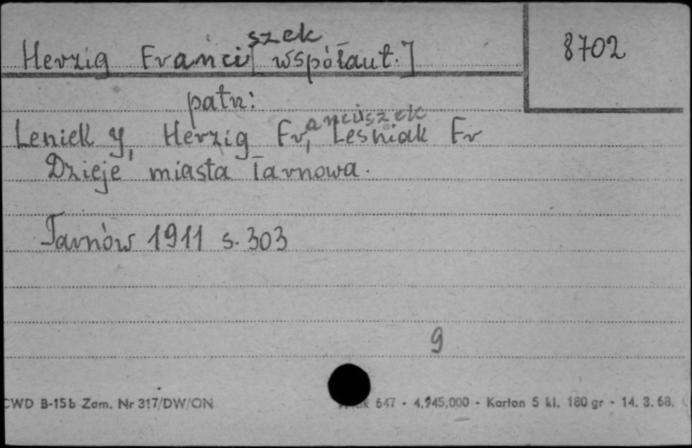 Herzig Franciszek [współaut.]
8702
patrz:
Leniek J, Herzig Franciszek, Leśniak Fr
Dzieje miasta Tarnowa.
Tarnów 1911 s. 303
9
CWD B-15b Zam. Nr 317/DW/ON 647 - 4.945.000 - Karton 5 kl. 180 gr - 14. 3. 68.